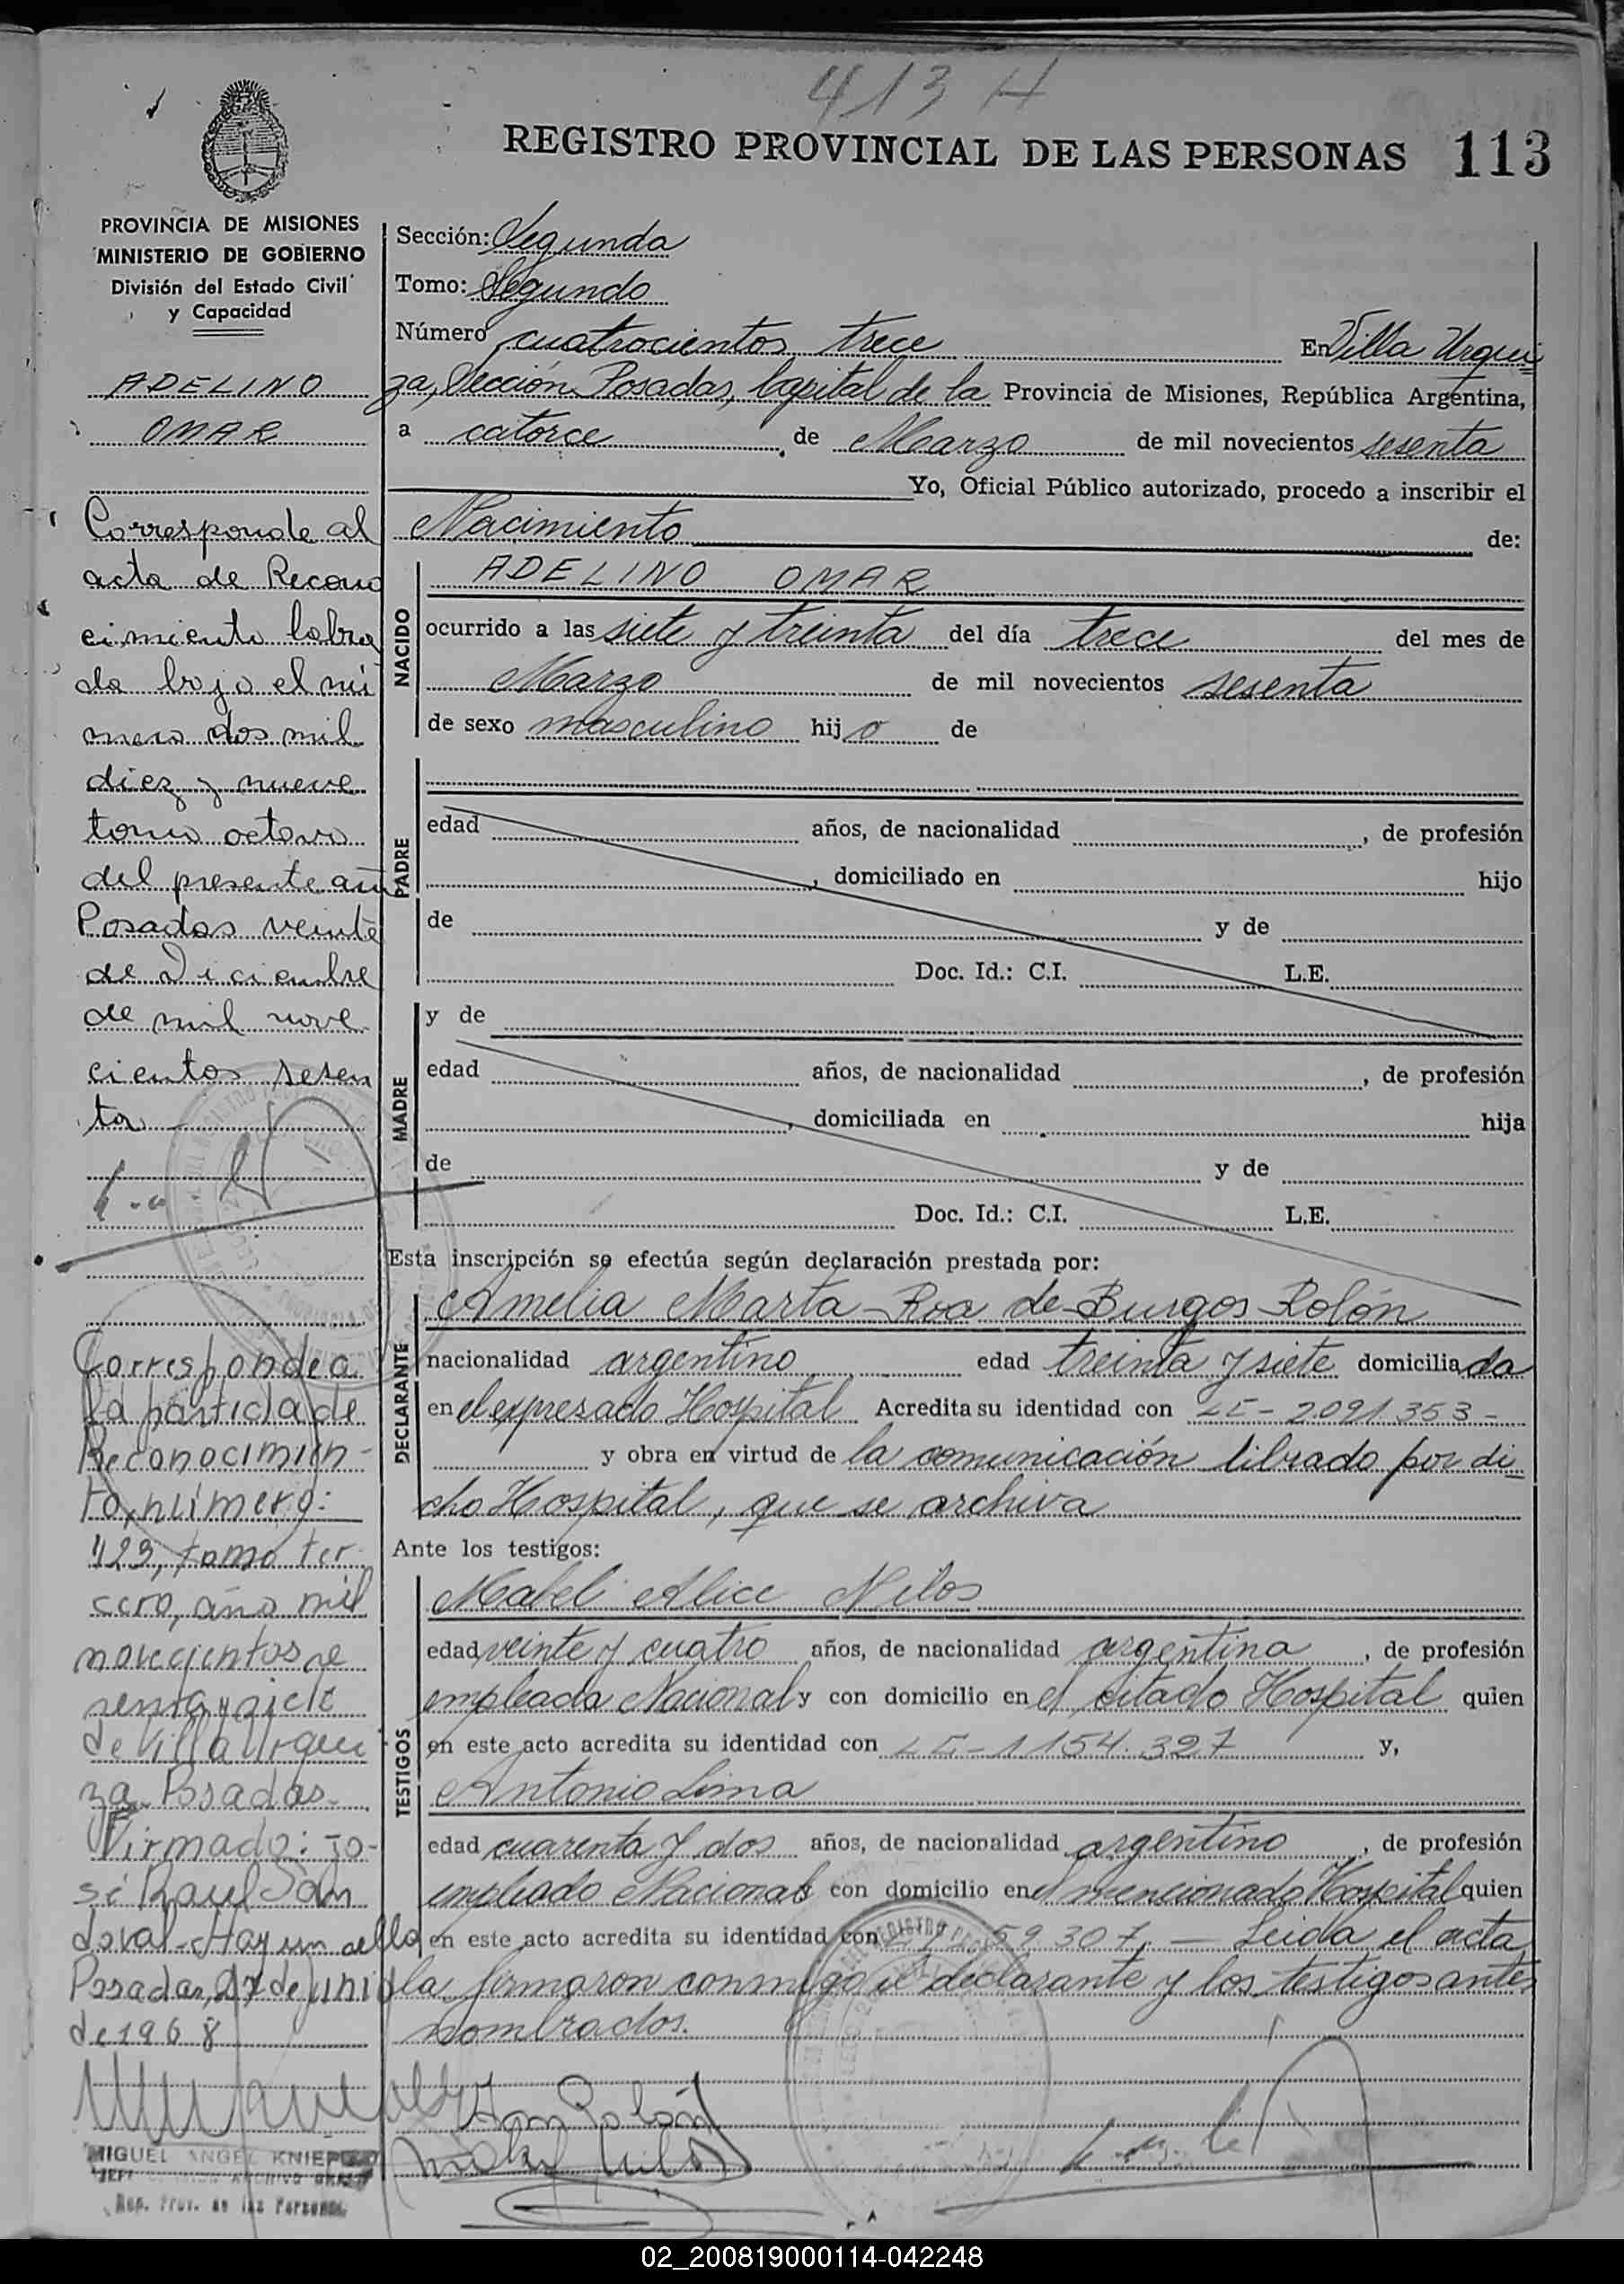 413 H
REGISTRO PROVINCIAL DE LAS PERSONAS 113
PROVINCIA DE MISIONES
MINISTERIO DE GOBIERNO
División del Estado Civil
y Capacidad
ADELINO
OMAR
Corresponde al
acta de Recono
cimiento labra
da bajo el nú
mero dos mil
diez y nueve
tomo octavo
del presente año
Posadas veinte
de Diciembre
de mil nove
cientos sesen
ta
Corresponde a
la partida de
Reconocimien-
to, número:
423, tomo ter
cero, año mil
novecientos se
senta y siete
de Villa Urqui
za-Posadas-
Firmado: Jo-
sé Raul San
doval-Hay un sello
Posadas, 27 de junio
de 1968
MIGUEL ANGEL KNIEP
JEFE ARCHIVO GRAL
Reg. Prov. de las Personas
Sección: Segunda
Tomo: Segundo
Número cuatrocientos trece En Villa Urqui
za, Sección Posadas, Capital de la Provincia de Misiones, República Argentina,
a catorce de Marzo de mil novecientos sesenta
Yo, Oficial Público autorizado, procedo a inscribir el
Nacimiento de:
NACIDO
ADELINO OMAR
ocurrido a las siete y treinta del día trece del mes de
Marzo de mil novecientos sesenta
de sexo masculino hijo de
PADRE
edad años, de nacionalidad , de profesión
, domiciliado en hijo
de y de
Doc. Id.: C.I. L.E.
MADRE
y de
edad años, de nacionalidad , de profesión
, domiciliada en hija
de y de
Doc. Id.: C.I. L.E.
Esta inscripción se efectúa según declaración prestada por:
DECLARANTE
Amelia Marta Roa de Burgos Rolón
nacionalidad argentino edad treinta y siete domiciliada
en el expresado Hospital Acredita su identidad con LC-2091353-
y obra en virtud de la comunicación librado por di
cho Hospital, que se archiva
Ante los testigos:
TESTIGOS
Mabel Alice Nilos
edad veinte y cuatro años, de nacionalidad argentina, de profesión
empleada Nacional y con domicilio en el citado Hospital quien
en este acto acredita su identidad con LC-1154.327 y,
Antonio Lima
edad cuarenta y dos años, de nacionalidad argentino, de profesión
empleado Nacional y con domicilio en el mencionado Hospital quien
en este acto acredita su identidad con 59.307.- Leida el acta
la firmaron conmigo el declarante y los testigos antes
nombrados.
02_200819000114-042248